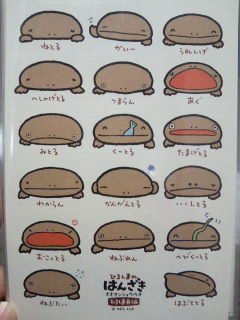 ねとる
かいー
うれしげ
へしゃげとる
つまらん
あぐ
みとる
くーとる
たまげとる
わからん
がんがんとる
・・・しとる
おこっとる
ねぶれん
へびくーとる
ねぶた・・・
ひろしまの
はんざき
オオサンショウウオ
ひろしま弁編
はぶてとる